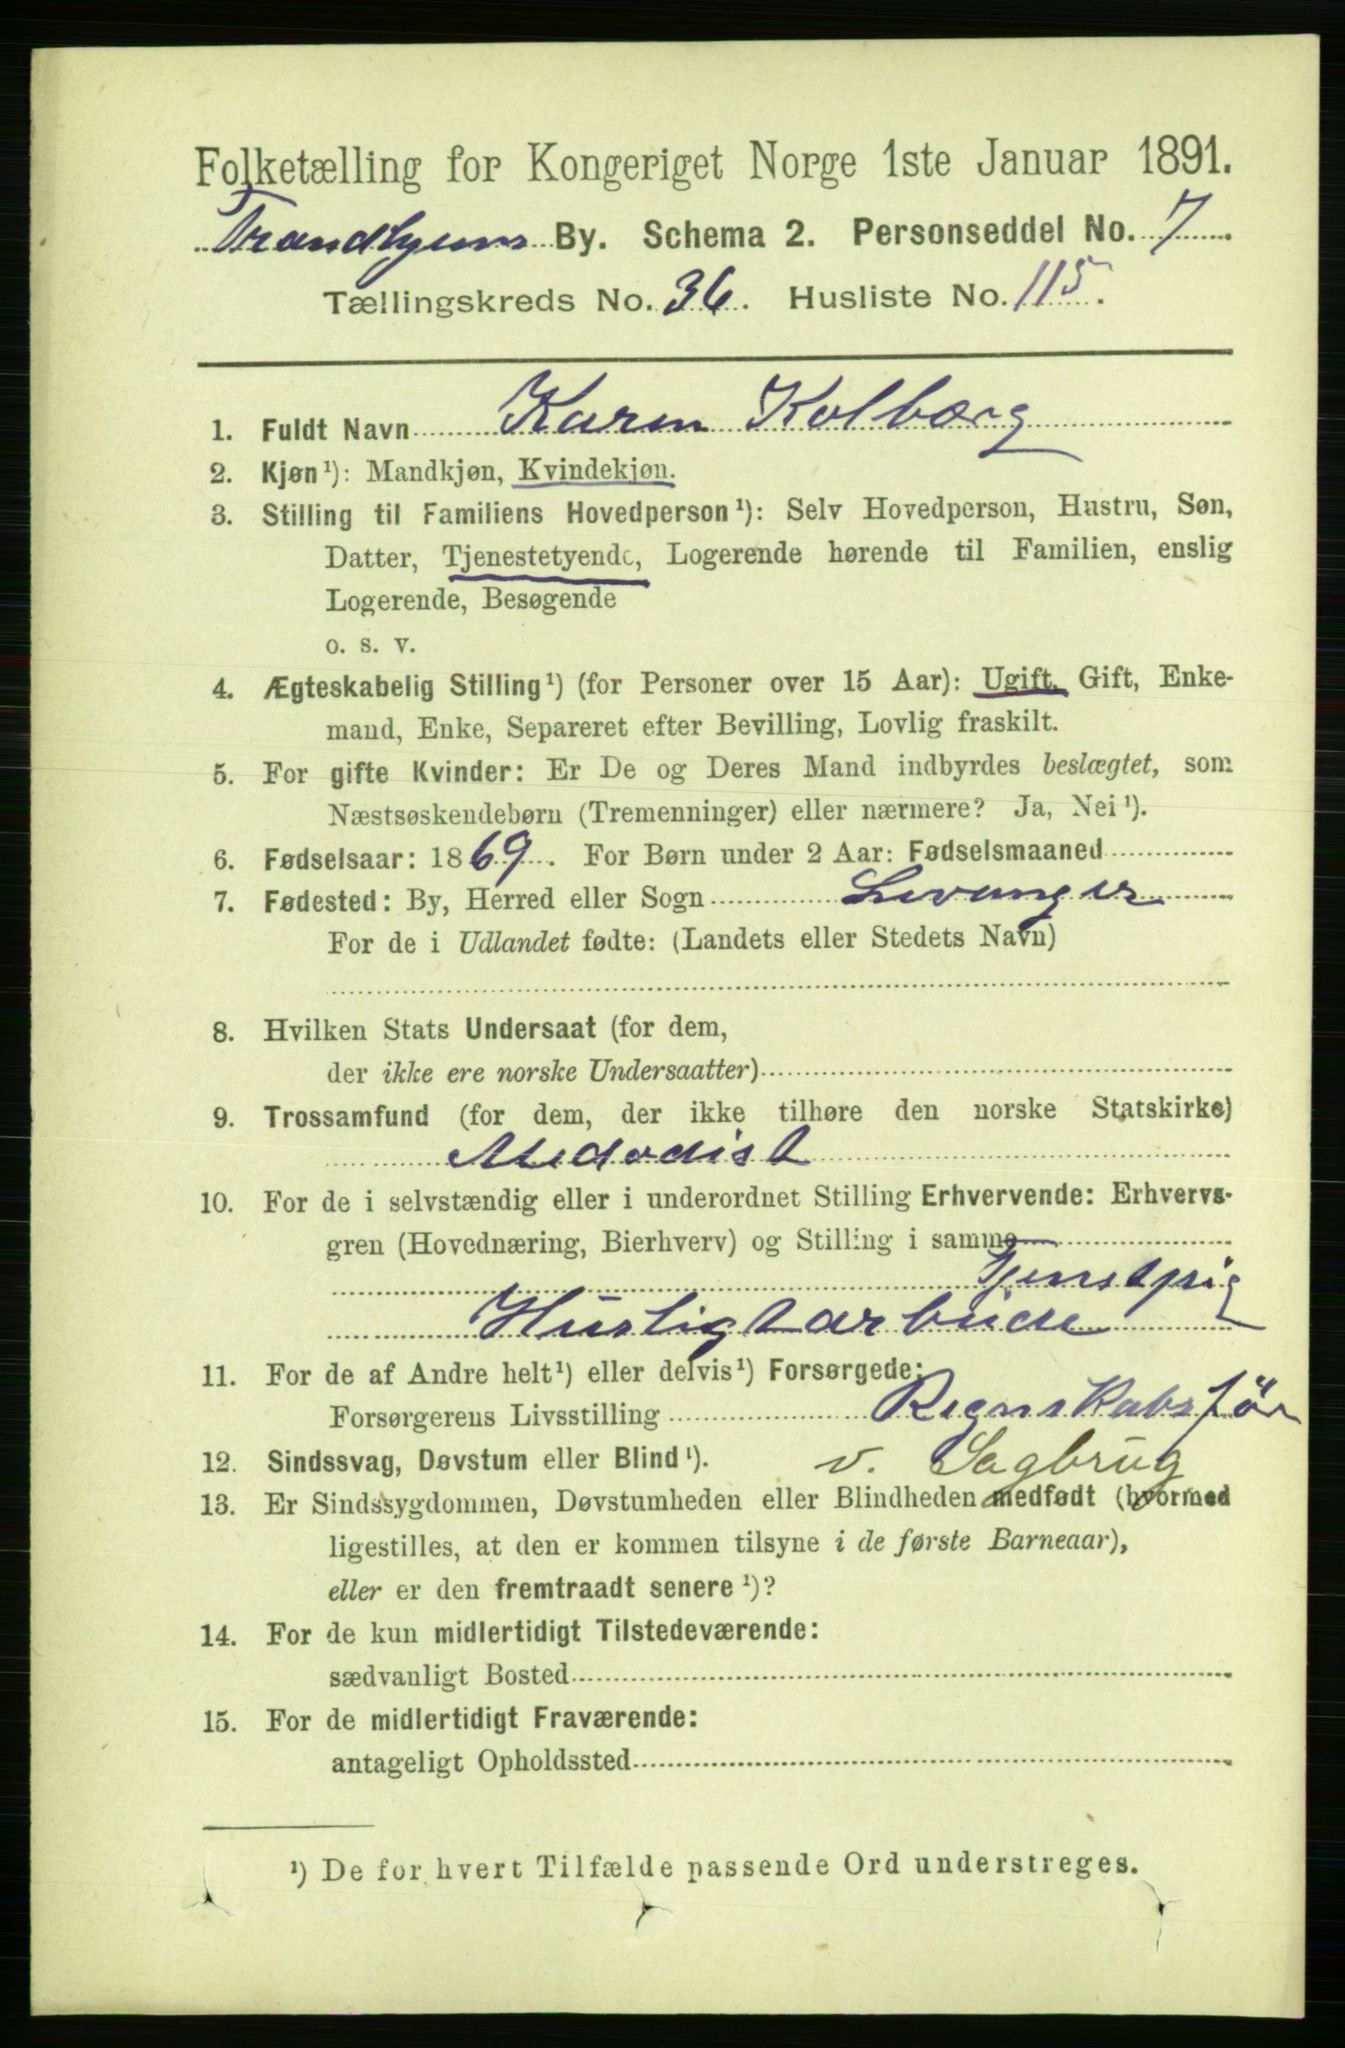 Folketælling for Kongeriget Norge 1ste Januar 1891.
Trondhjems By. Schema 2. Personseddel No. 7
Tællingskreds No. 36. Husliste No. 115.
1. Fuldt Navn Karen Kolbærg
2. Kjøn¹): Mandkjøn, Kvindekjøn.
3. Stilling til Familiens Hovedperson¹): Selv Hovedperson, Hustru, Søn,
Datter, Tjenestetyende, Logerende hørende til Familien, enslig
Logerende, Besøgende
o. s. v.
4. Ægteskabelig Stilling¹) (for Personer over 15 Aar): Ugift, Gift, Enke-
mand, Enke, Separeret efter Bevilling, Lovlig fraskilt.
5. For gifte Kvinder: Er De og Deres Mand indbyrdes beslægtet, som
Næstsøskendebørn (Tremenninger) eller nærmere? Ja, Nei¹).
6. Fødselsaar: 1869. For Børn under 2 Aar: Fødselsmaaned
7. Fødested: By, Herred eller Sogn Levanger
For de i Udlandet fødte: (Landets eller Stedets Navn)
8. Hvilken Stats Undersaat (for dem,
der ikke ere norske Undersaatter)
9. Trossamfund (for dem, der ikke tilhøre den norske Statskirke)
Medodist
10. For de i selvstændig eller i underordnet Stilling Erhvervende: Erhvervs-
gren (Hovednæring, Bierhverv) og Stilling i samme
Tjenstpig
Husligt arbeide
11. For de af Andre helt¹) eller delvis¹) Forsørgede:
Forsørgerens Livsstilling Regnskabsför
12. Sindssvag, Døvstum eller Blind¹). v. Sagbrug
13. Er Sindssygdommen, Døvstumheden eller Blindheden medfødt (hvormed
ligestilles, at den er kommen tilsyne i de første Barneaar),
eller er den fremtraadt senere¹)?
14. For de kun midlertidigt Tilstedeværende:
sædvanligt Bosted
15. For de midlertidigt Fraværende:
antageligt Opholdssted
¹) De for hvert Tilfælde passende Ord understreges.